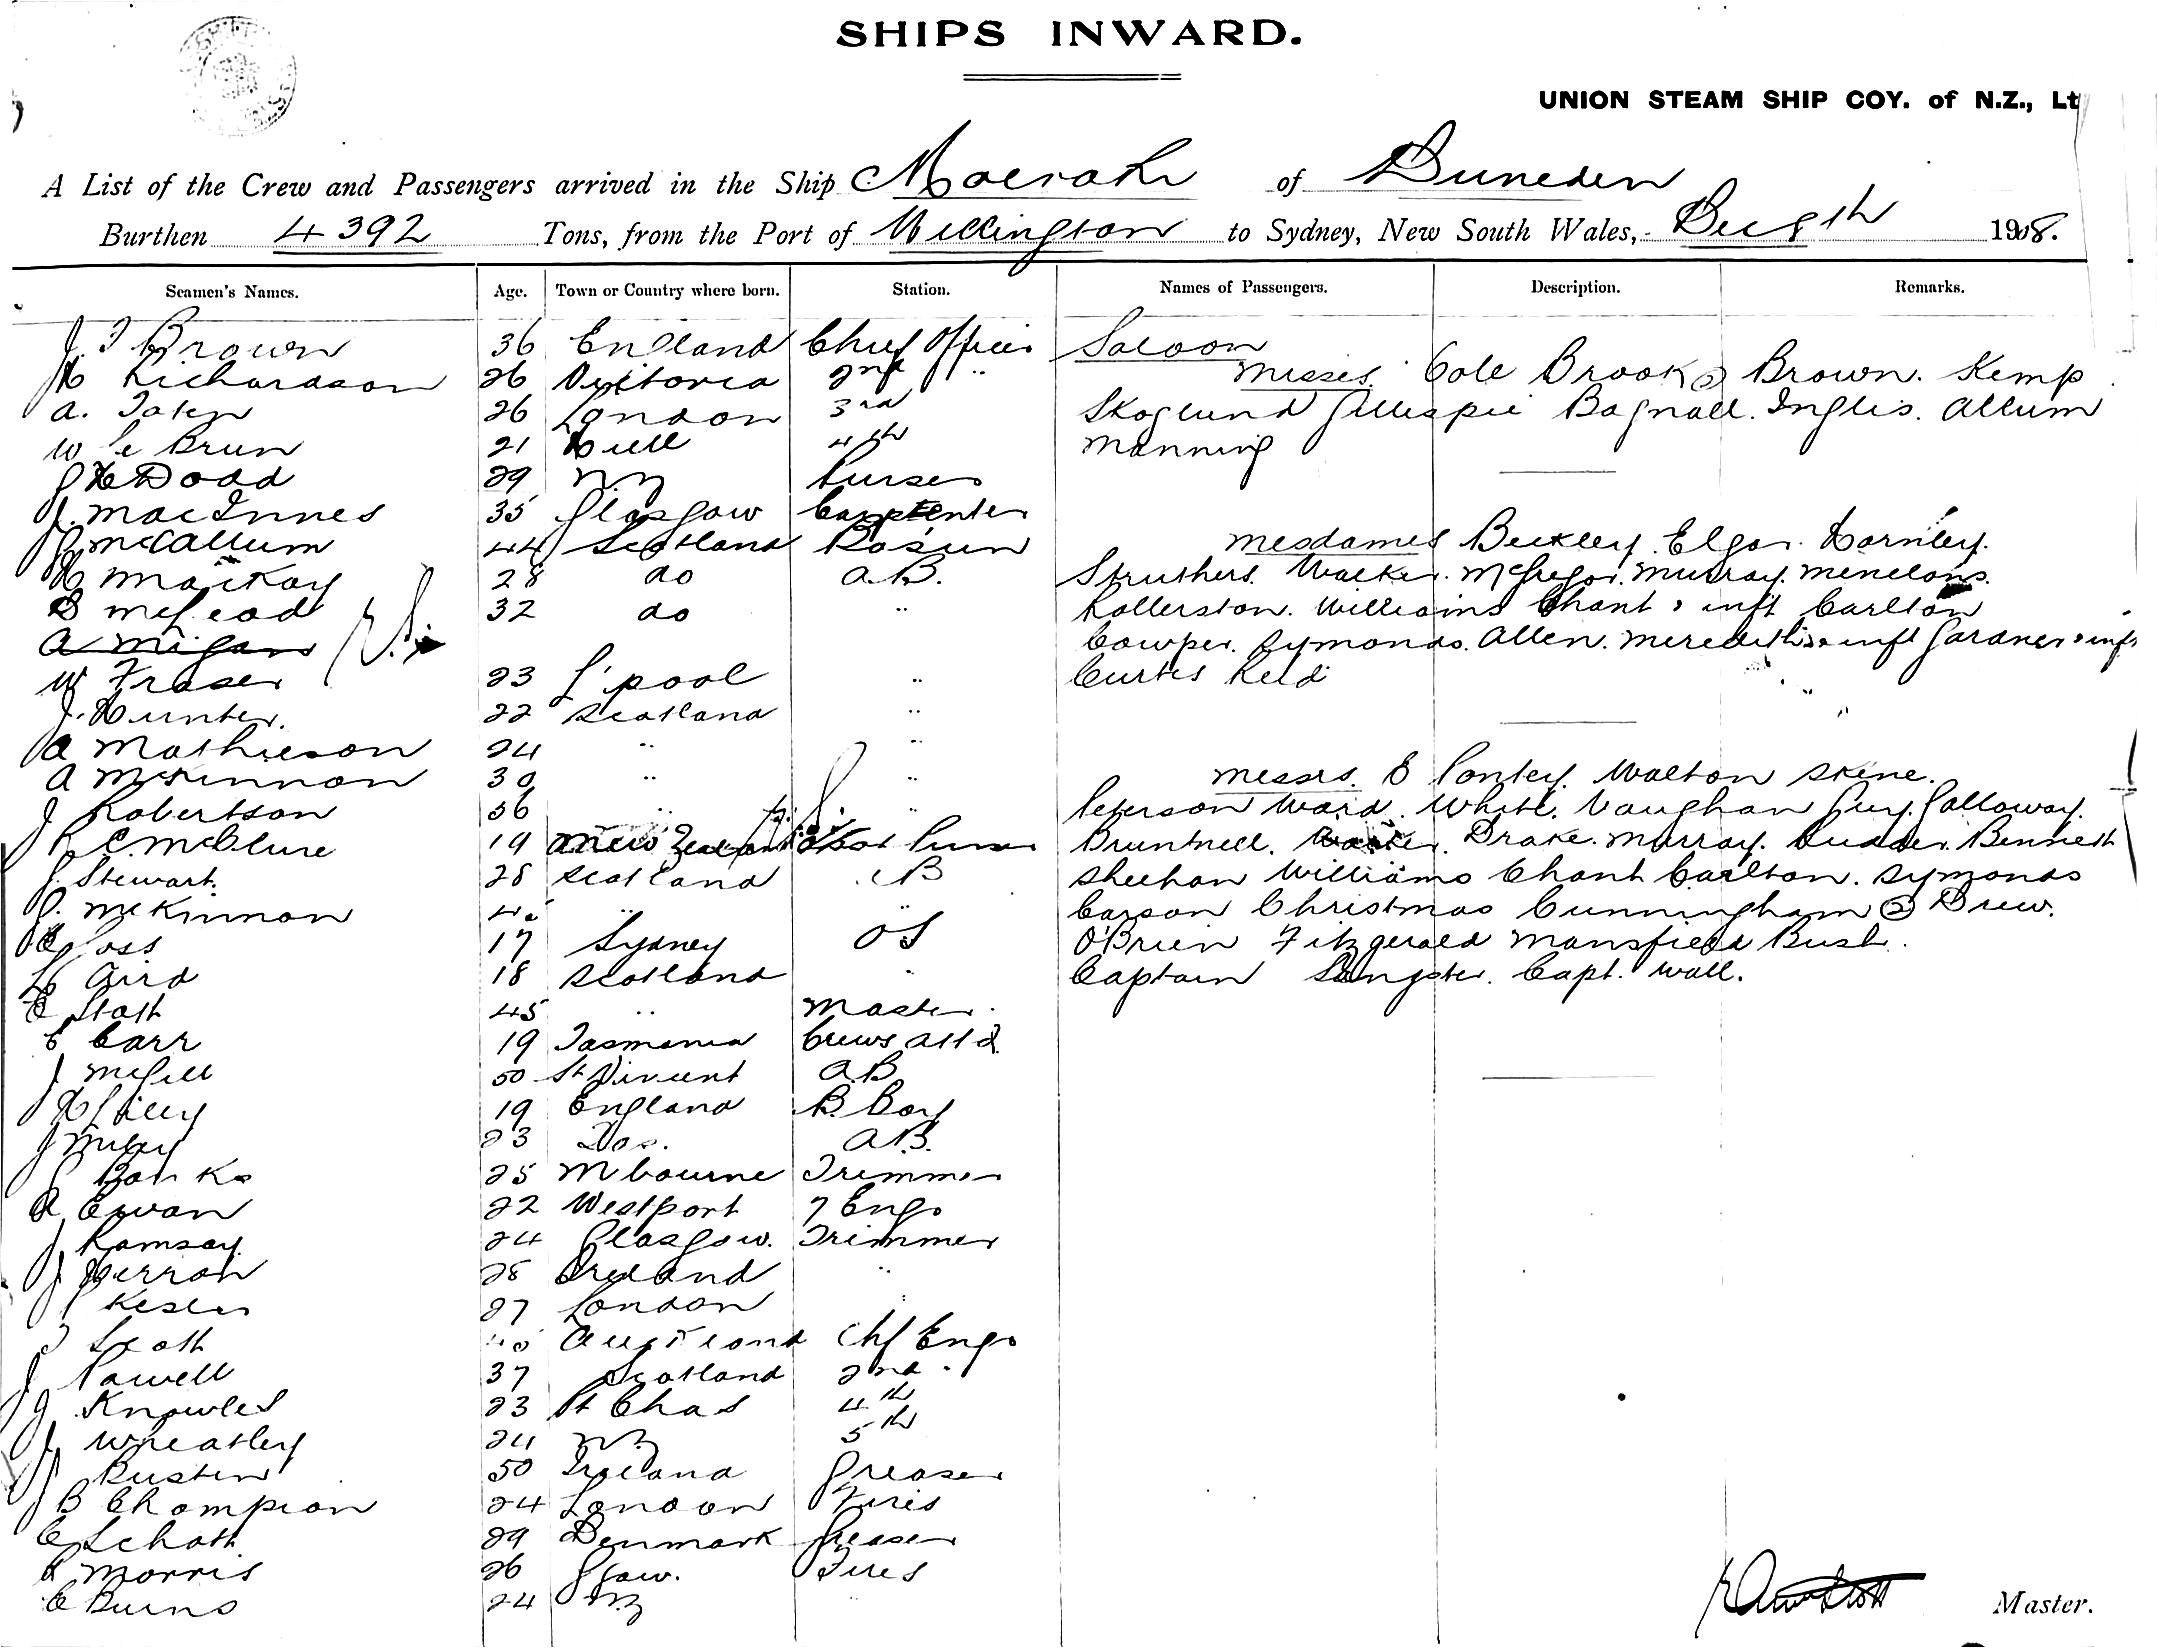 SHIPS INWARD.
UNION STEAM SHIP COY. of N.Z., Lt
A List of the Crew and Passengers arrived in the Ship Moeraki of Dunedin
Burthen 4392 Tons, from the Port of Wellington to Sydney, New South Wales, Dec 8th 1908.
Seamen's Names. Age. Town or Country where born. Station. Names of Passengers. Description. Remarks.
J. Brown 36 England Chief Officer Saloon
H Richardson 26 Victoria 2nd " Misses. Cole Brook 2 Brown. Kemp
A. 26 London 3rd Skoglund Gillespie Bagnall. Inglis. Allum
W Le Brun 21 Hull 4th Manning
J H Dodd 29 N.Z Purser
J. MacInnes 35 Glasgow Carpenter
J McCallum 44 Scotland Bosun Mesdames Beckley. Elgar. Hornley.
H Mackay 28 do A.B. Struthers. Walker. McGregor. Murray. Menelaus.
D McLeod 32 do " Rollerston. Williams Chant & inft Carlton
A Milgans Cowper. Symonds. Allen. Meredith & inft Gardner & inft
W Fraser 23 L'pool " Curtis Reid
J. Hunter. 22 Scotland "
A Mathieson 24 " "
A McKinnon 30 " " Messrs. E Pontey. Walton Skene.
J Robertson 56 " " Peterson Ward. White. Vaughan Guy. Galloway.
R C. McClure 19 New Zealand Asst Purser Bruntnell. Drake. Murray. Bennett
J. Stewart. 28 Scotland AB Sheehan Williams Chant Carlton. Symonds
J. McKinnon 40 " " Carson Christmas Cunningham 2 Drew.
Goss 17 Sydney OS O'Brien Fitzgerald Mansfield Bush.
L Aird 18 Scotland " Captain Sangster. Capt. Wall.
E Stott 45 " Master.
C Carr 19 Tasmania Crews Attd.
J McGill 50 St Vincent A.B
H Lilley 19 England B. Boy
J 23 Do. A.B.
J Banks 25 Mbourne Trimmer
A Ewan 22 Westport 7 Engr
J Ramsay. 24 Glasgow. Trimmer
J. Herron 28 Ireland "
J Kesler 27 London "
J Scott 45 Auckland Chf Engr
J Powell 37 Scotland 2nd "
J Knowles 23 Pt Chas 4th
J. Wheatley 24 NZ 5th
J Rustin 50 Ireland Greaser
B Champion 24 London Fires
C Schott 29 Denmark Greaser
R Morris 26 Ggow. Fires
C Burns 24 N.Z "
Master.